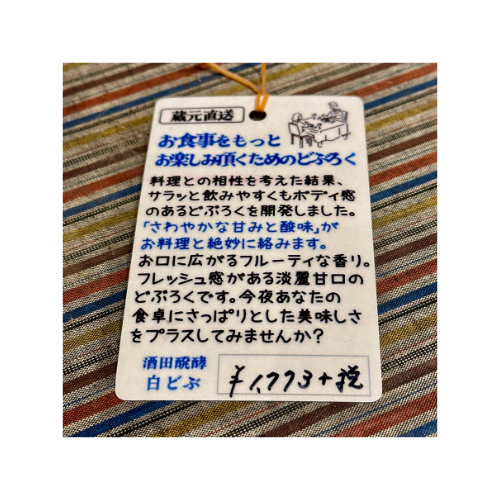 蔵元直送
お食事をもっと
お楽しみ頂くためのどぶろく
料理との相性を考えた結果、
サラッと飲みやすくもボディ感
のあるどぶろくを開発しました。
「さわやかな甘みと酸味」が
お料理と絶妙に絡みます。
お口に広がるフルーティな香り。
フレッシュ感がある淡麗甘口の
どぶろくです。今夜あなたの
食卓にさっぱりとした美味しさ
をプラスしてみませんか?
酒田醗酵
白どぶ
¥1,773+税